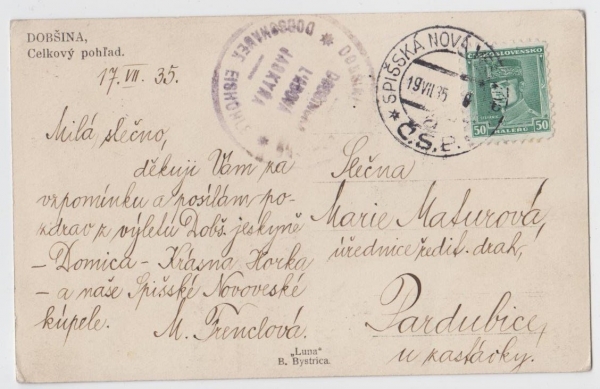 DOBŠINA,
Celkový pohľad.
17. VII. 35.
Milá slečno,
děkuji Vám za
vzpomínku a posílám po-
zdrav z výletu Dobš. jeskyně
- Domica - Krásna Horka
- a naše Spišské Novoveské
kúpele.
M. Frenclová.
DOBSCHAUER EISHÖHLE
ĽADOVÁ
JASKYŇA
SPIŠSKÁ NOVÁ
19 VII 35
Č.S.P.
ČESKOSLOVENSKO
50 HALÉŘŮ 50
Slečna
Marie Maturová,
úřednice ředit. drah,
Pardubice,
u kastácky.
"Luna"
B. Bystrica.